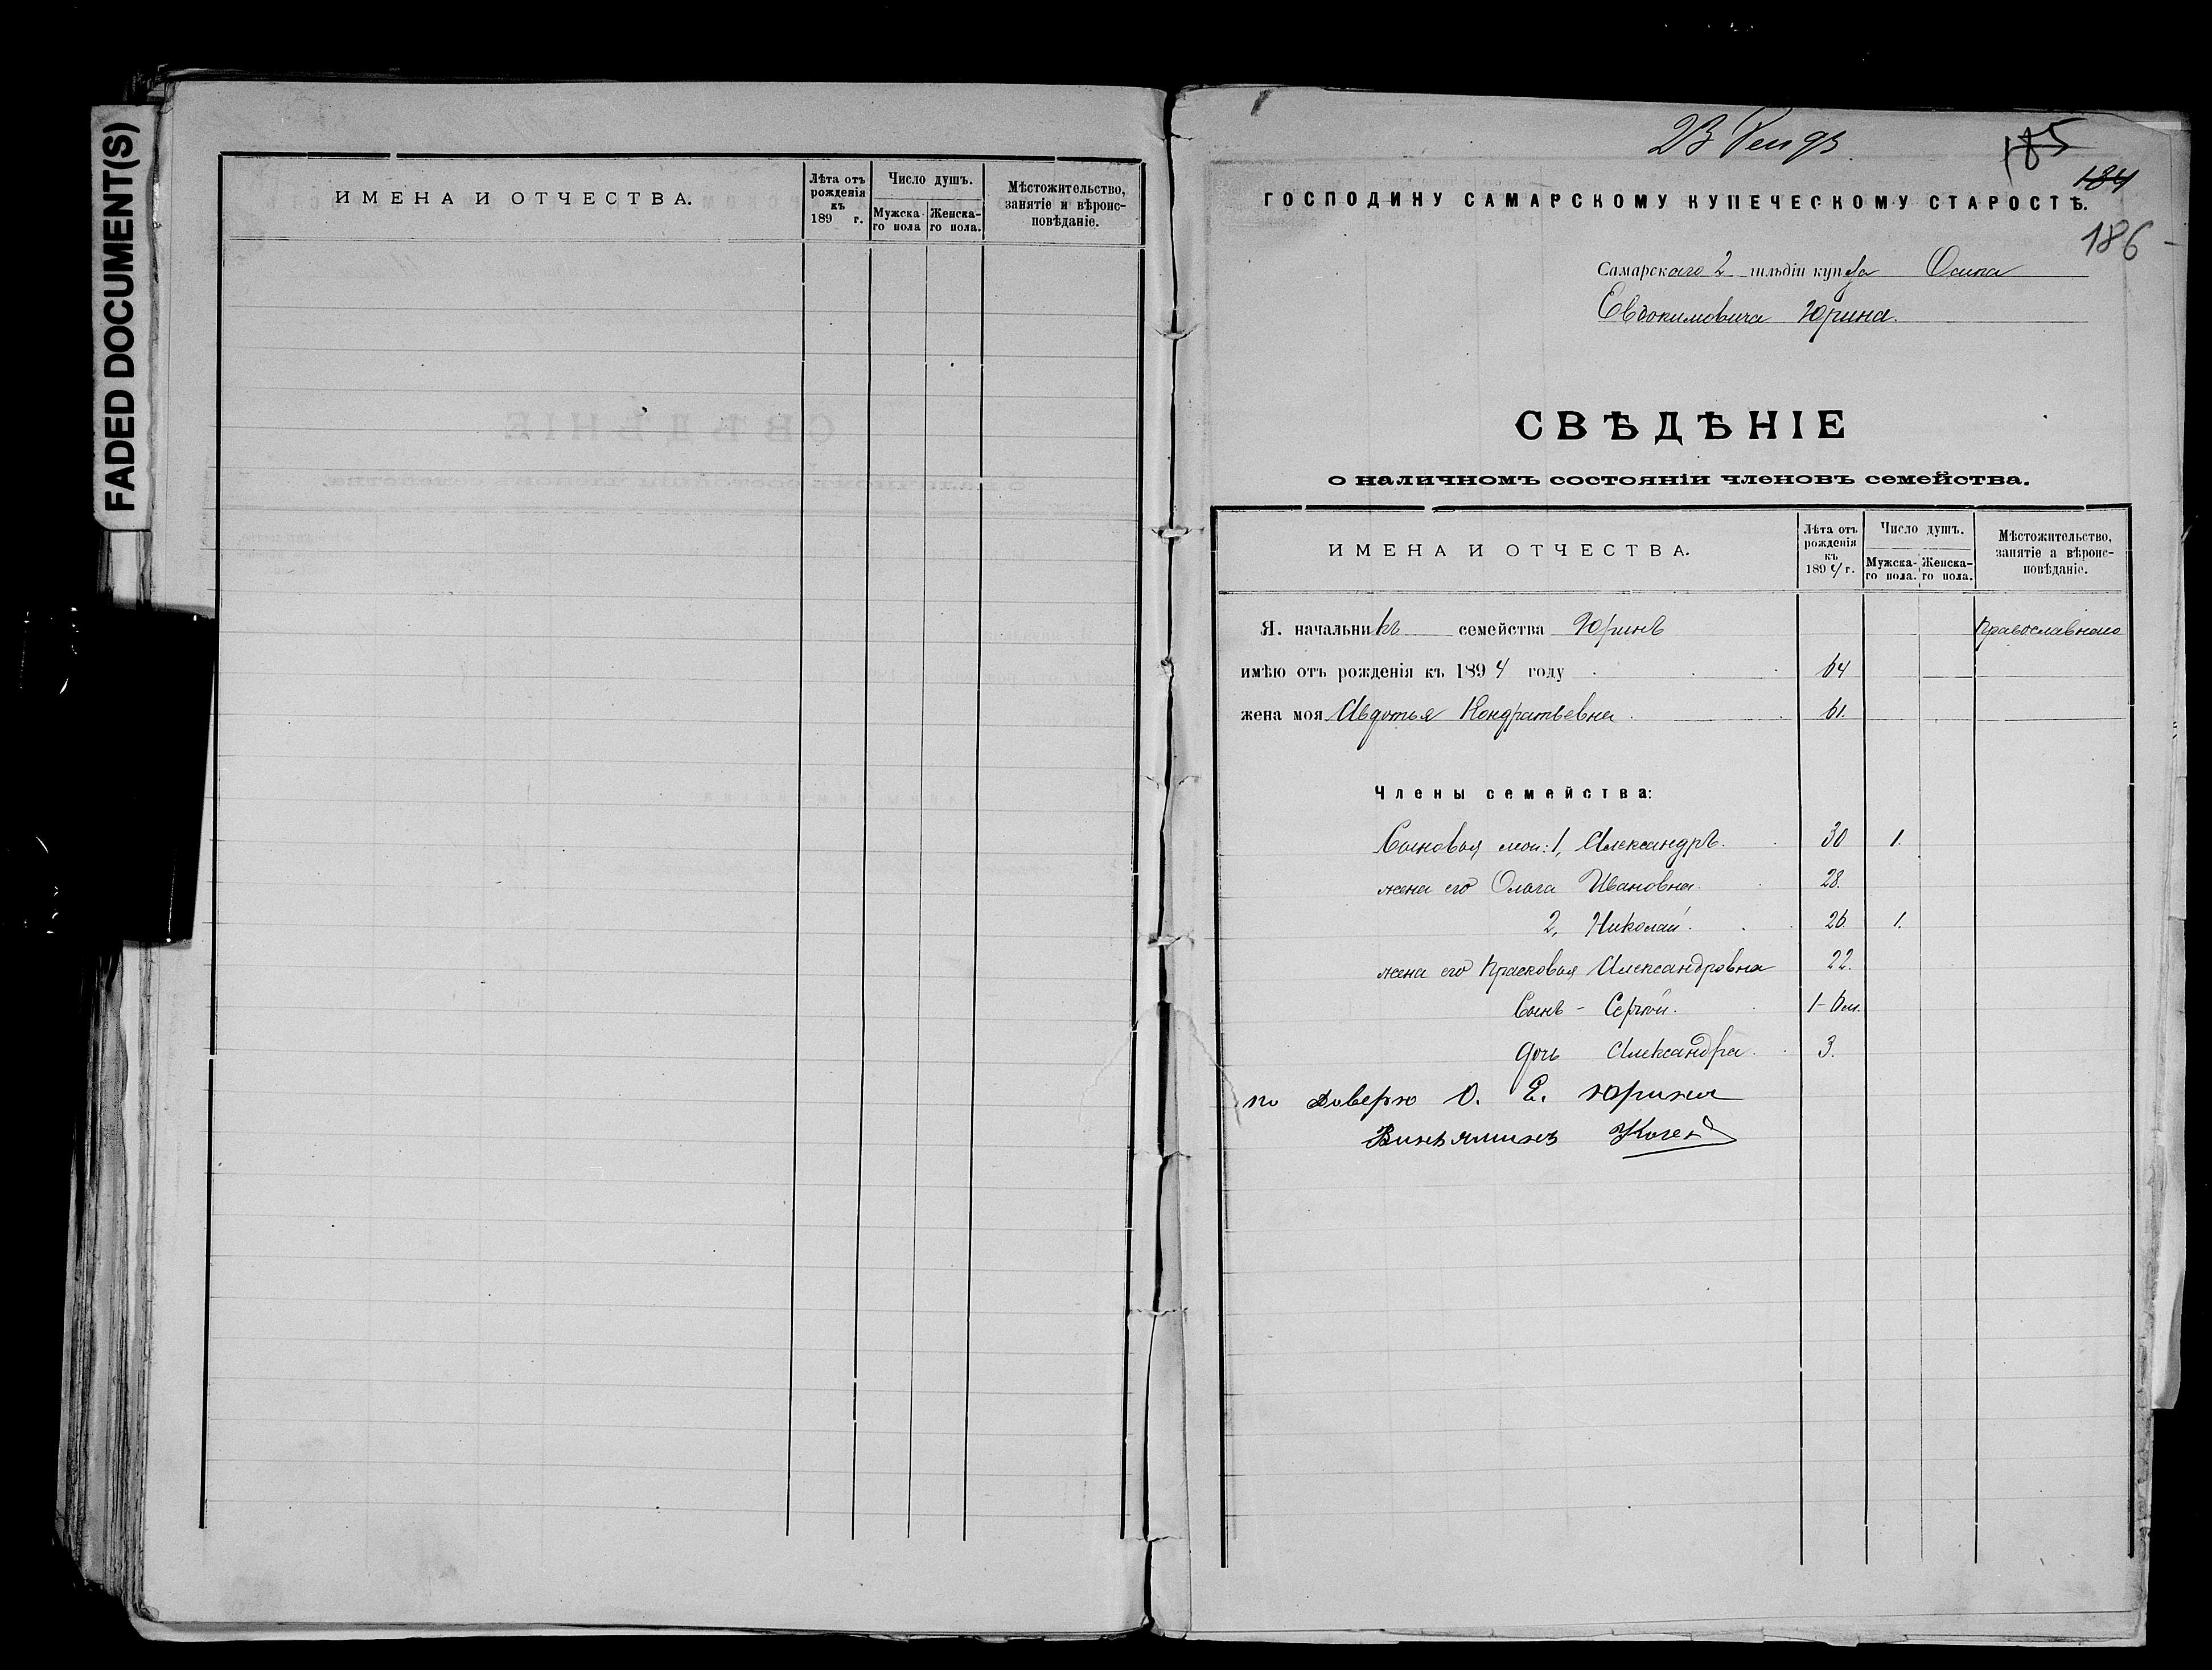 FADED DOCUMENT(S)
ИМЕНА И ОТЧЕСТВА.
Лѣта отъ рожденія къ 189 г.
Число душъ.
Мужска-го пола
Женска-го пола.
Мѣстожительство, занятіе и вѣроис-повѣданіе.
23
185
184
ГОСПОДИНУ САМАРСКОМУ КУПЕЧЕСКОМУ СТАРОСТѢ.
186
Самарскаго 2 гильдіи купца Осипа
Евдокимовича Юрина.
СВѢДѢНІЕ
о наличномъ состояніи членовъ семейства.
ИМЕНА И ОТЧЕСТВА.
Лѣта отъ рожденія къ 1894 г.
Число душъ.
Мужска-го пола.
Женска-го пола.
Мѣстожительство, занятіе а вѣроис-повѣданіе.
Я. начальникъ семейства Юринъ Православнаго
имѣю отъ рожденія къ 1894 году 64
жена моя Авдотья Кондратьевна. 61.
Члены семейства:
Сыновья мои: 1, Александръ. 30 1.
жена его Ольга Ивановна. 28.
2, Николай. 26. 1.
жена его Прасковья Александровна 22.
Сынъ - Сергѣй. 1- 6 м.
дочь Александра. 3.
по доверю О. Е. Юрина
Виньяминъ